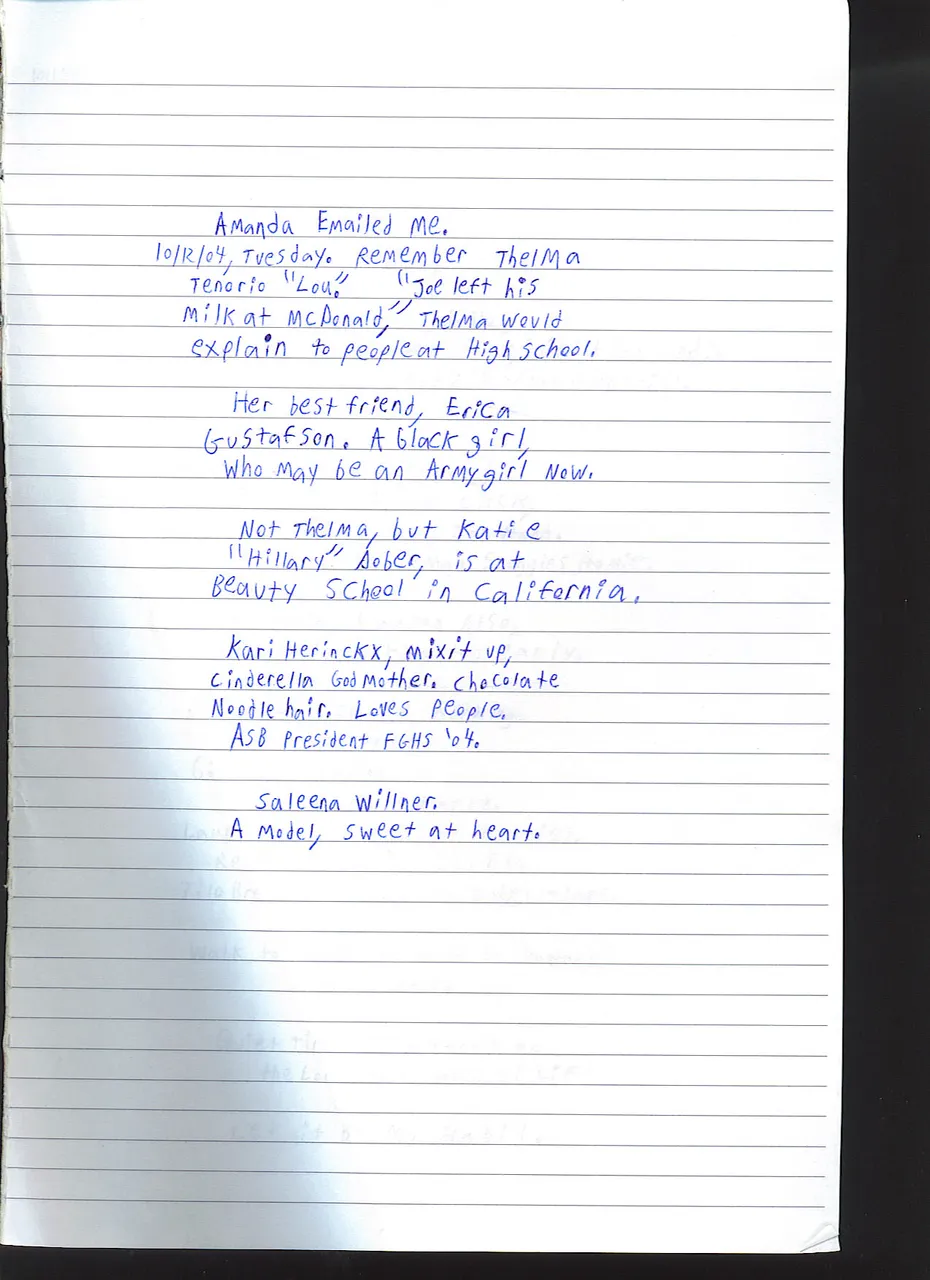 Amanda Emailed Me.
10/12/04, Tuesday. Remember Thelma
Tenorio "Lou." "Joe left his
Milk at McDonald," Thelma would
explain to people at High school.
Her best friend, Erica
Gustafson. A black girl,
Who may be an Army girl Now.
Not Thelma, but Katie
"Hillary" Dober, is at
Beauty School in California.
Kari Herinckx, mix it up,
Cinderella GodMother. Chocolate
Noodle hair. Loves People.
ASB President FGHS '04.
Saleena Willner.
A Model, sweet at heart.